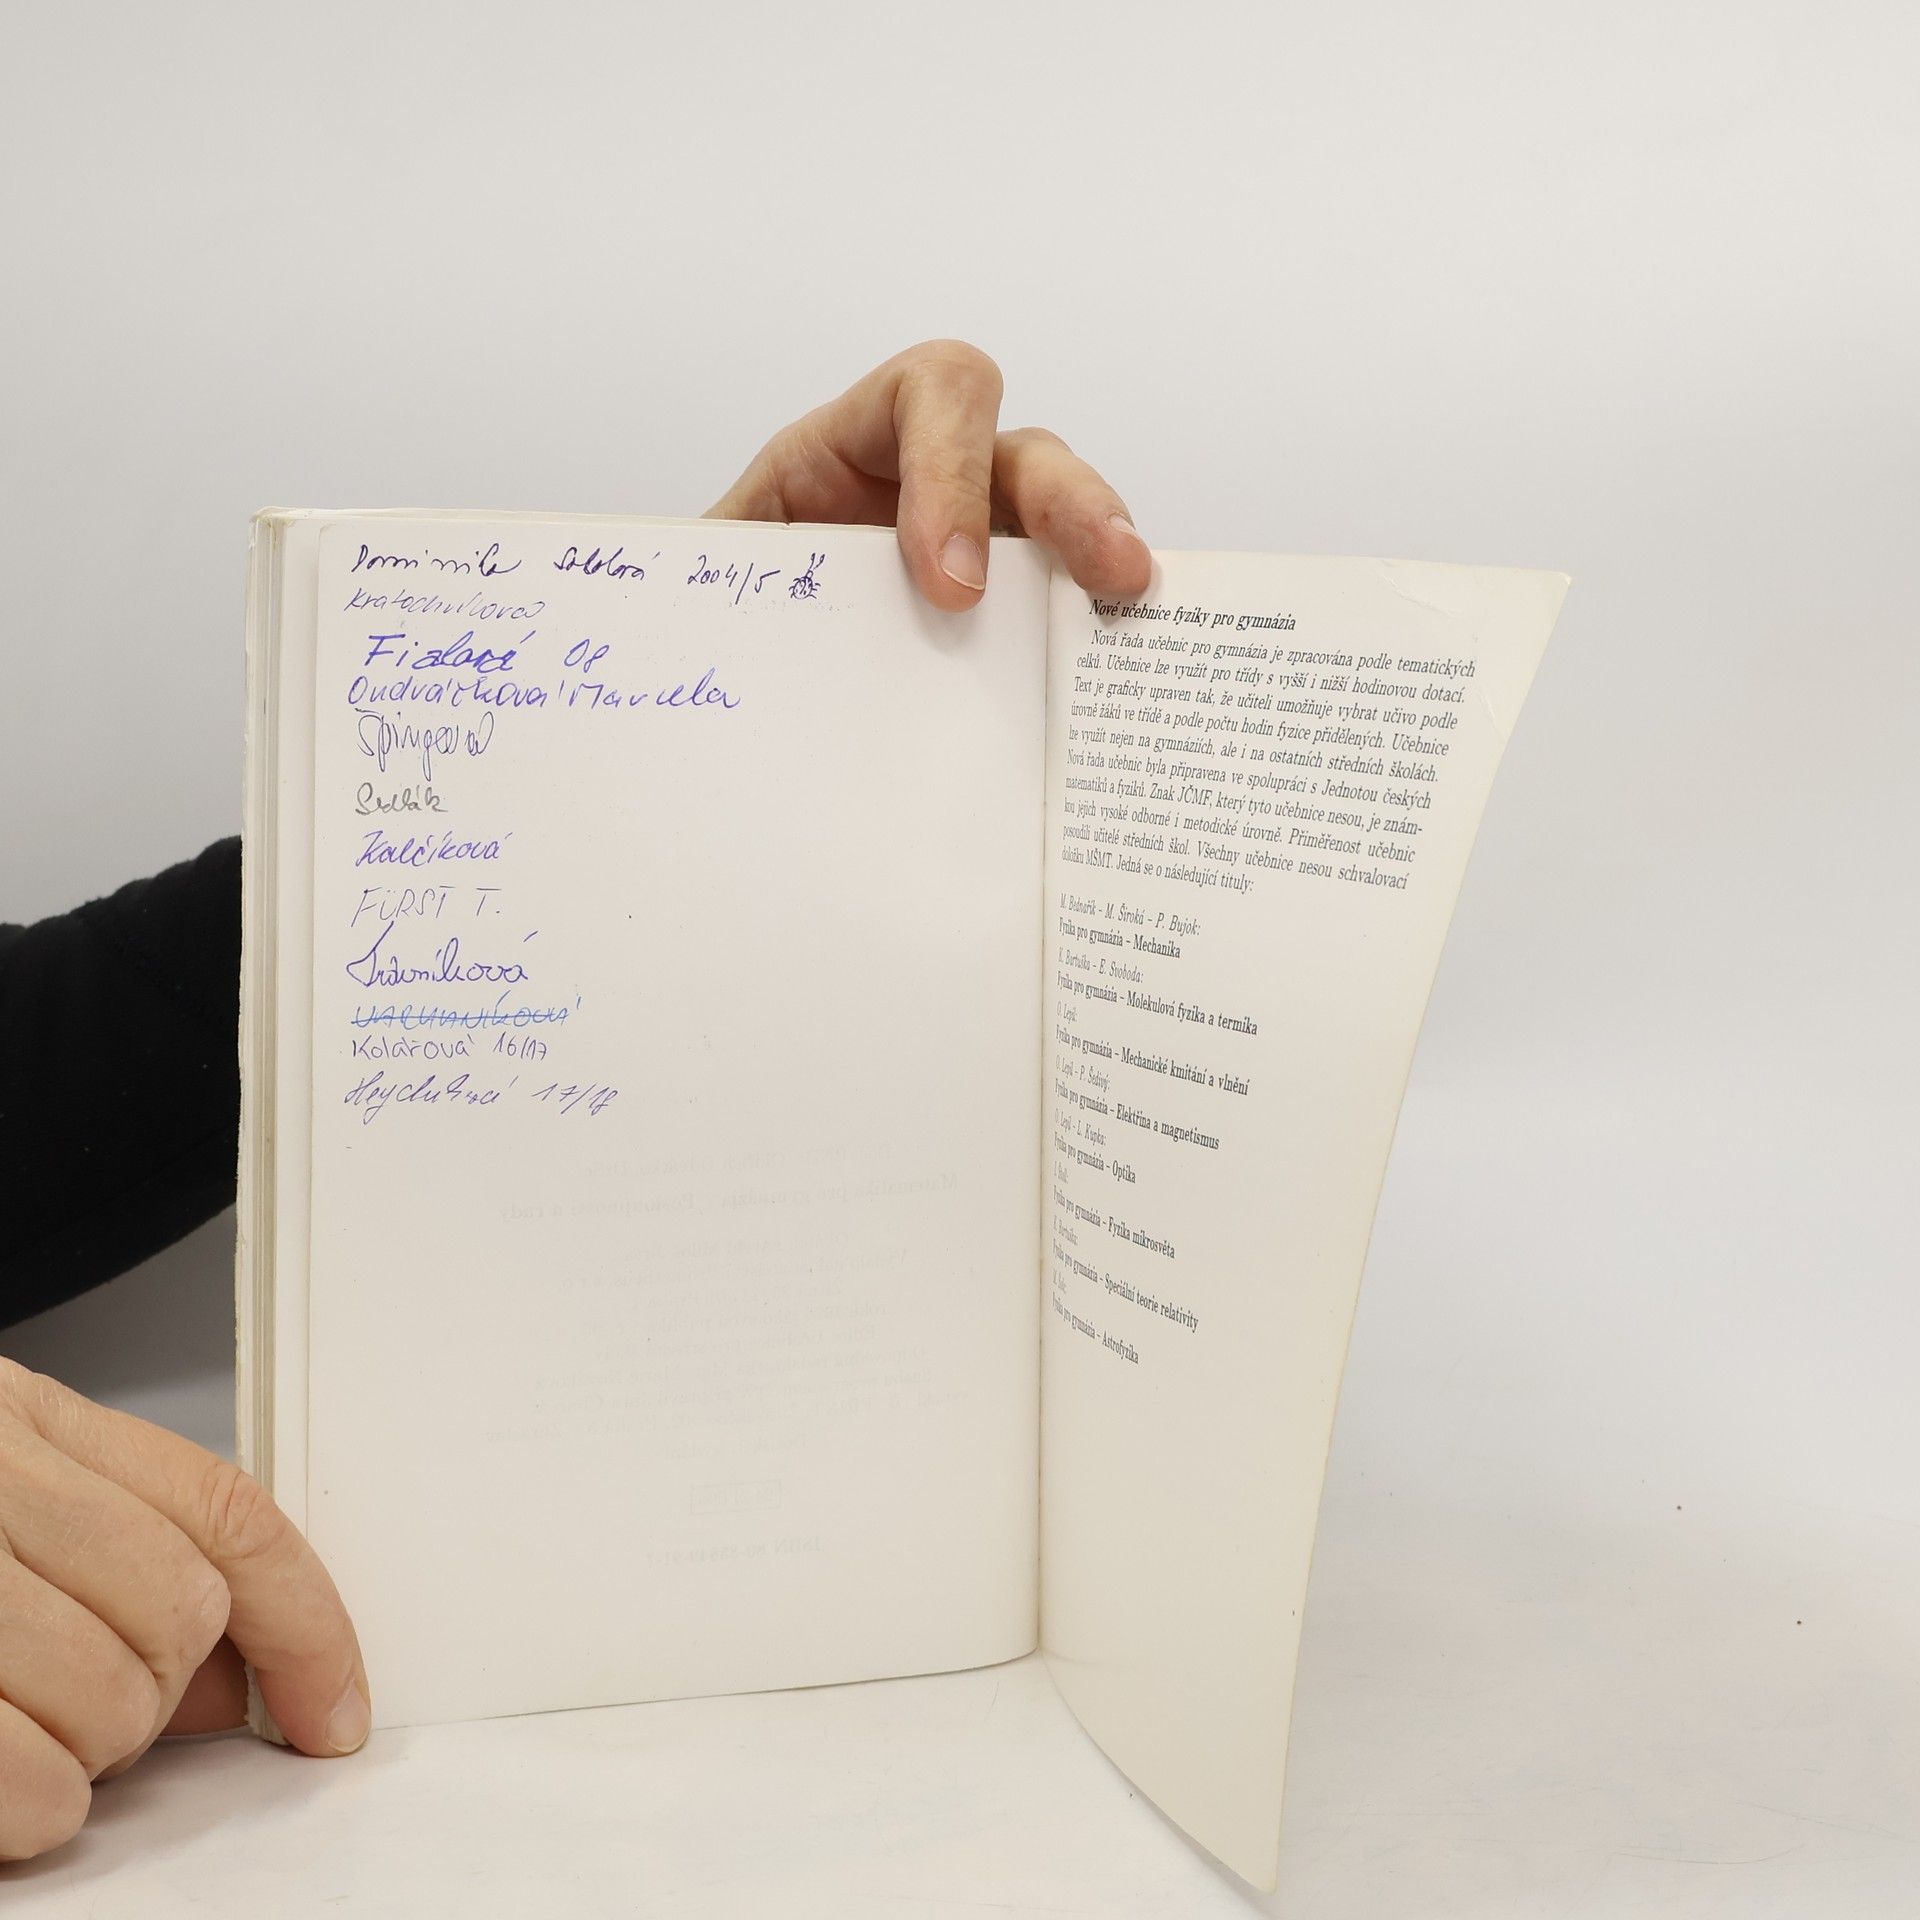 Dominika Sokolová 2004/5
Kratochvílová
Fialová 08
Ondváčková Marcela
Špingová
Sedlák
Kalčíková
FÜRST T.
Trávníková
Kolářová 16/17
Heyduková 17/18
Nové učebnice fyziky pro gymnázia
Nová řada učebnic pro gymnázia je zpracována podle tematických
celků. Učebnice lze využít pro třídy s vyšší i nižší hodinovou dotací.
Text je graficky upraven tak, že učiteli umožňuje vybrat učivo podle
úrovně žáků ve třídě a podle počtu hodin fyzice přidělených. Učebnice
lze využít nejen na gymnáziích, ale i na ostatních středních školách.
Nová řada učebnic byla připravena ve spolupráci s Jednotou českých
matematiků a fyziků. Znak JČMF, který tyto učebnice nesou, je znám-
kou jejich vysoké odborné i metodické úrovně. Přiměřenost učebnic
posoudili učitelé středních škol. Všechny učebnice nesou schvalovací
doložku MŠMT. Jedná se o následující tituly:
M. Bednařík – M. Široká – P. Bujok:
Fyzika pro gymnázia – Mechanika
K. Bartuška – E. Svoboda:
Fyzika pro gymnázia – Molekulová fyzika a termika
O. Lepil:
Fyzika pro gymnázia – Mechanické kmitání a vlnění
O. Lepil – P. Šedivý:
Fyzika pro gymnázia – Elektřina a magnetismus
O. Lepil – L. Kupka:
Fyzika pro gymnázia – Optika
I. Štoll:
Fyzika pro gymnázia – Fyzika mikrosvěta
K. Bartuška:
Fyzika pro gymnázia – Speciální teorie relativity
Fyzika pro gymnázia – Astrofyzika